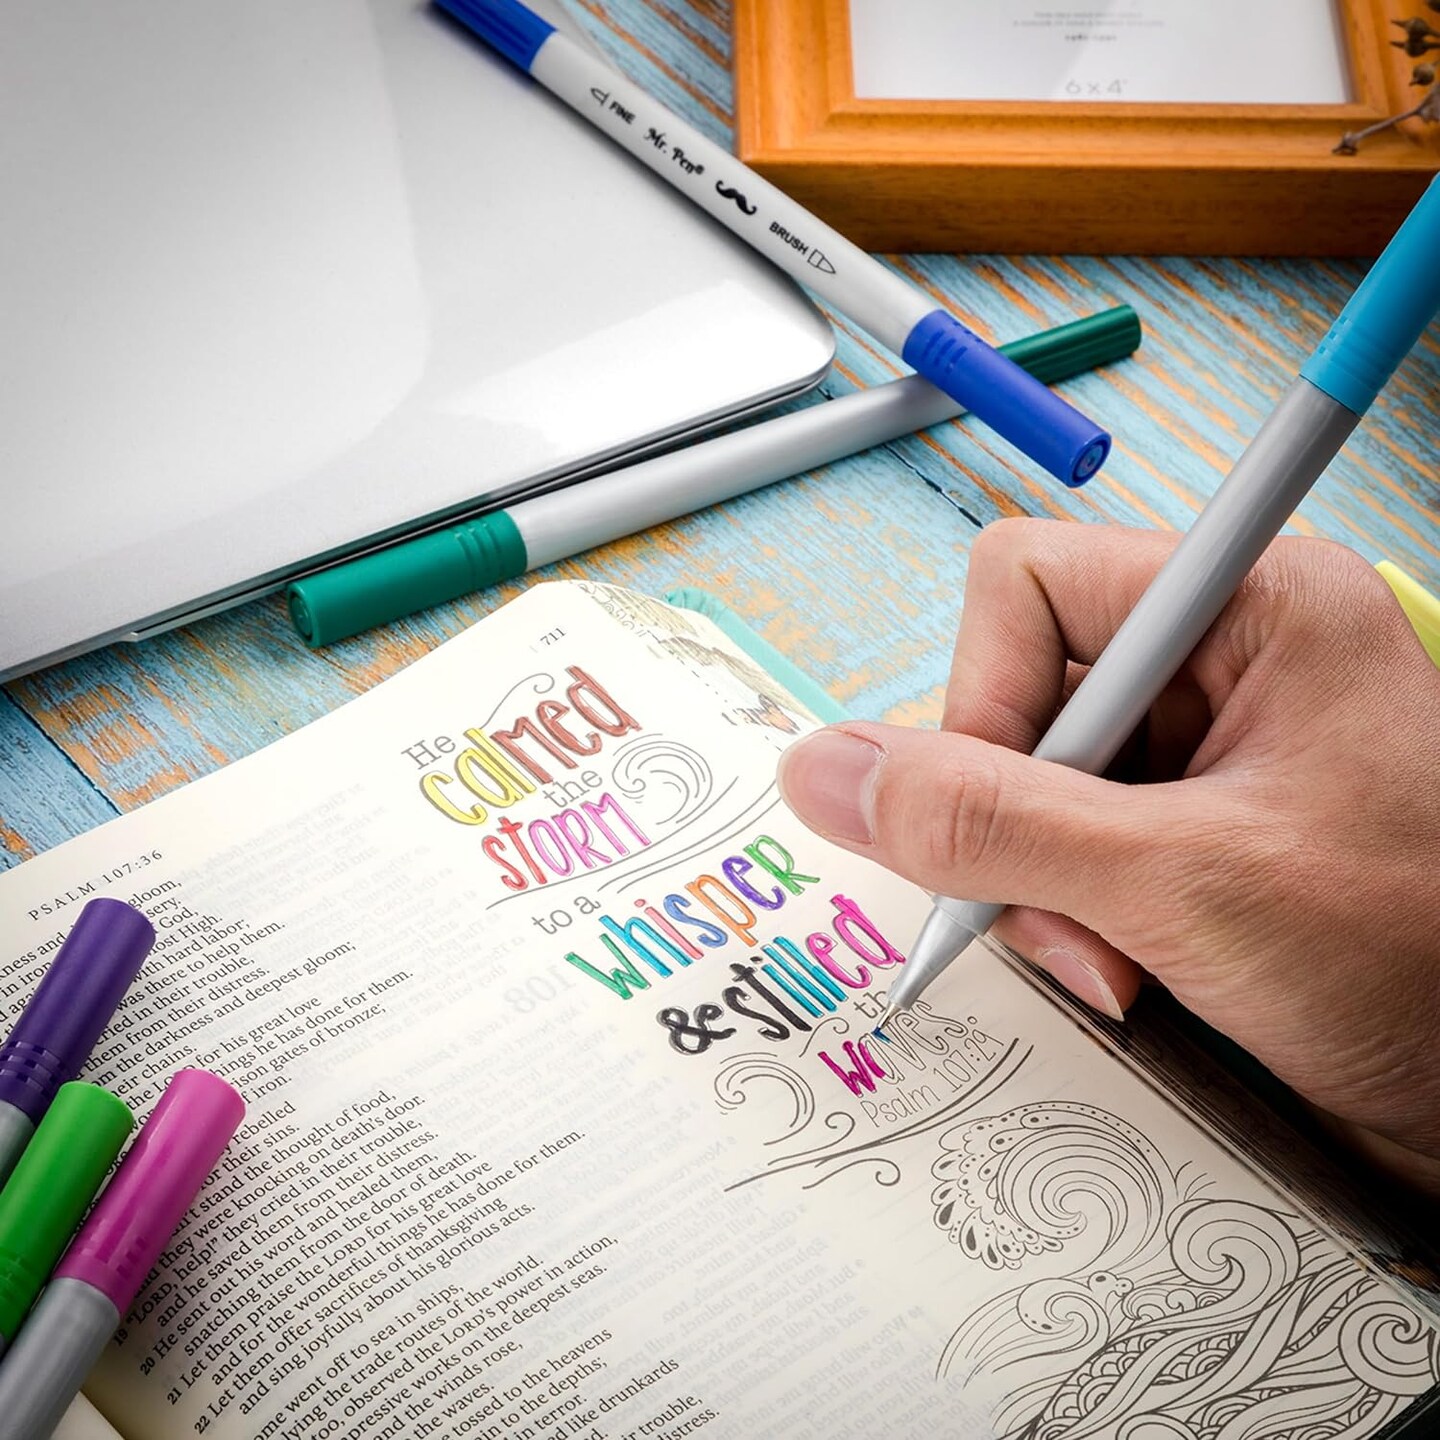 6 x 4"
FINE Mr. Pen® BRUSH
711
He
calmed
the
STORM
to a
whisper
& stilled
the
waves.
Psalm 107:29
PSALM 107:36
gloom,
God,
ost High.
with hard labor;
was there to help them.
in their trouble,
them from their distress.
the darkness and deepest gloom;
their chains.
for his great love
things he has done for them.
ison gates of bronze;
of iron.
rebelled
for their sins.
stand the thought of food,
they were knocking on death's door.
19 "LORD, help!" they cried in their trouble,
and he saved them from their distress.
20 He sent out his word and healed them,
snatching them from the door of death.
21 Let them praise the LORD for his great love
and for the wonderful things he has done for them.
22 Let them offer sacrifices of thanksgiving
and sing joyfully about his glorious acts.
ome went off to sea in ships,
lying the trade routes of the world.
too, observed the LORD's power in action,
pressive works on the deepest seas.
and the winds rose,
the waves.
e tossed to the heavens
in to the depths;
in terror.
d like drunkards
ir trouble,
distress.